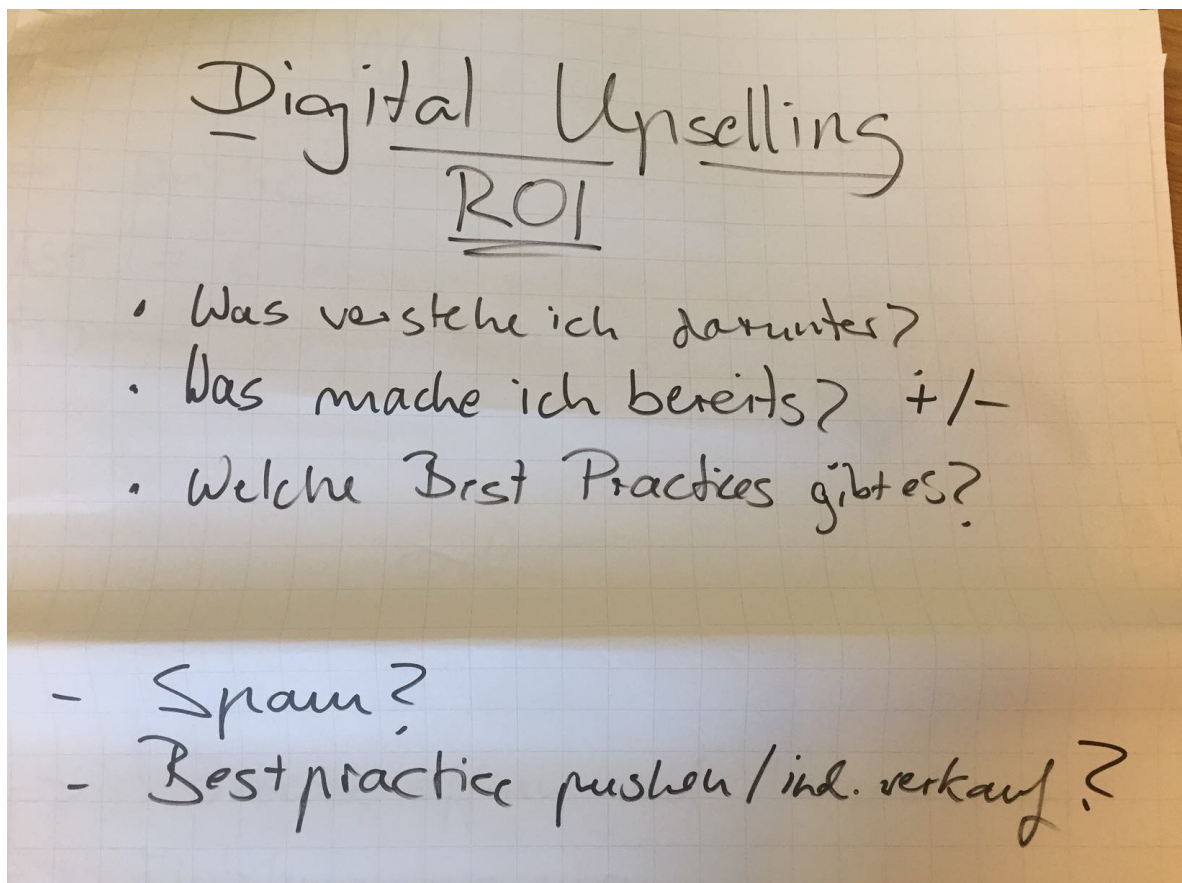 Digital Upselling
ROI
• Was verstehe ich darunter?
• Was mache ich bereits? +/-
• Welche Best Practices gibt es?
- Spam?
- Bestpractice pushen/ind. verkauf?